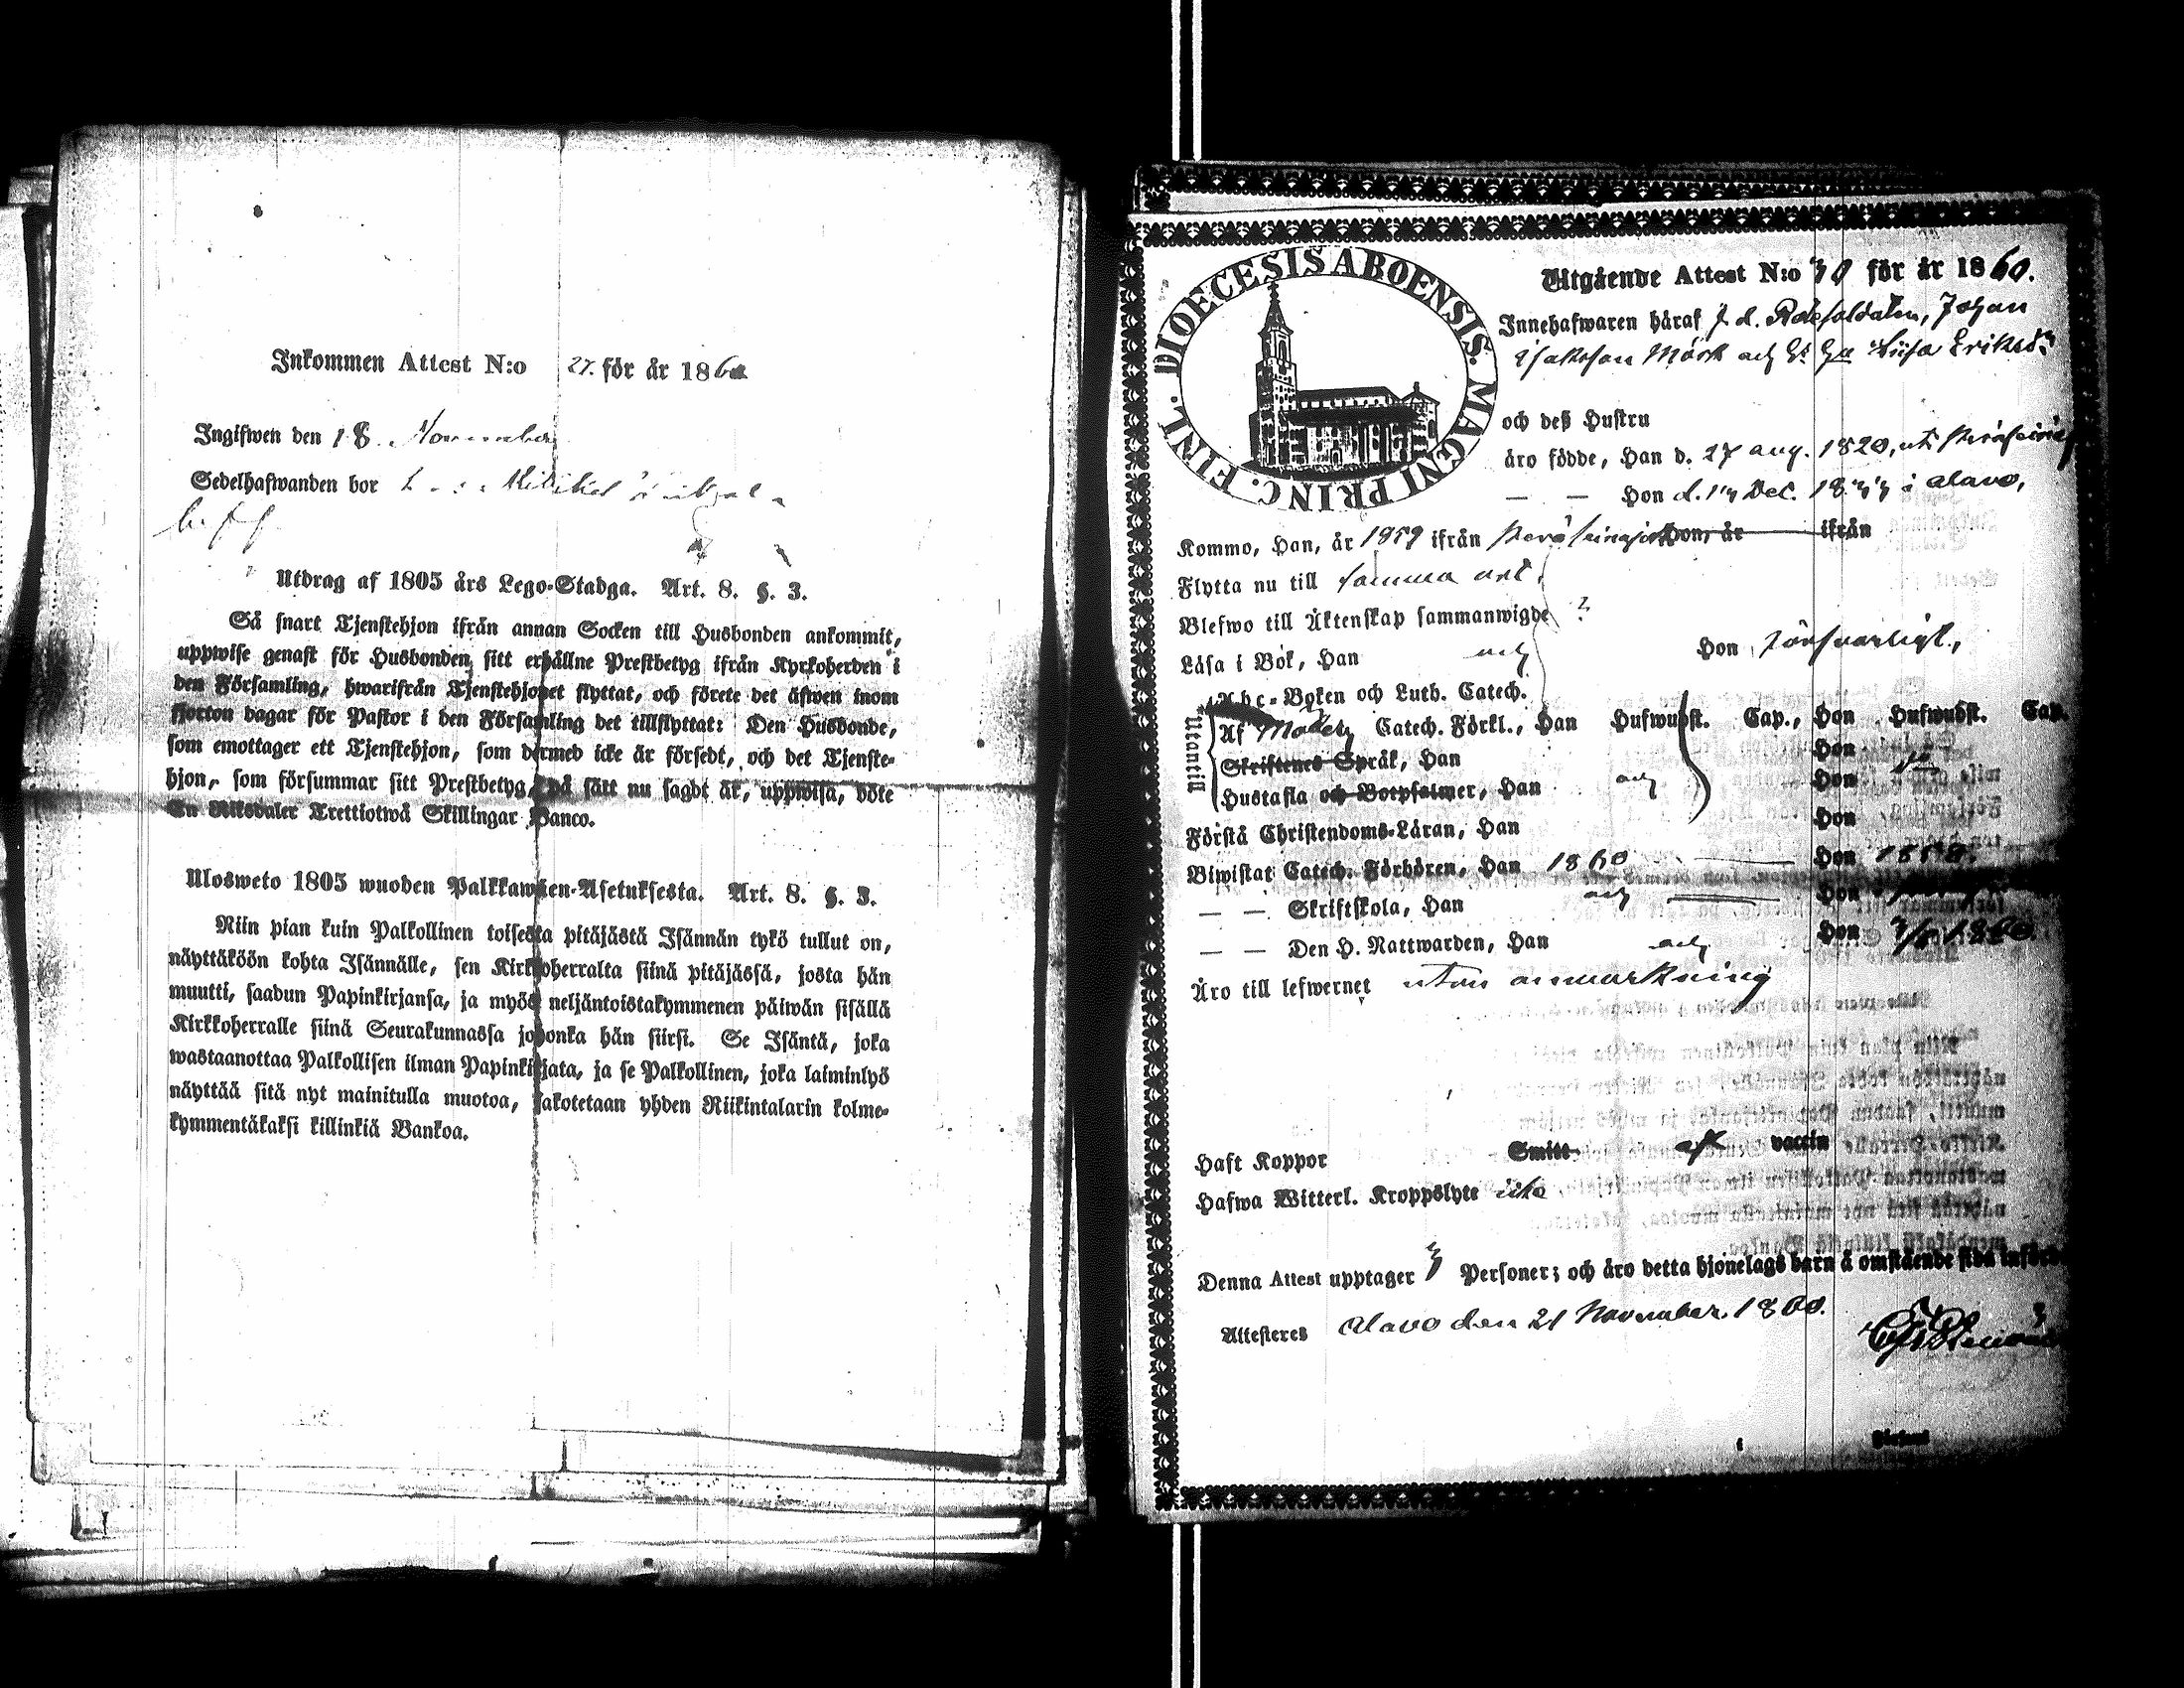 Inkommen Attest N:o 27. för år 1860
Ingifwen den 18. November
Sedelhafwanden bor
Utdrag af 1805 års Lego-Stadga. Art. 8. §. 3.
Så snart Tjenstehjon ifrån annan Socken till Husbonden ankommit,
uppwise genast för Husbonden sitt erhållne Prestbetyg ifrån Kyrkoherden i
den Församling, hwarifrån Tjenstehjonet flyttat, och förete det äfwen inom
fjorton dagar för Pastor i den Församling det tillflyttat: Den Husbonde,
som emottager ett Tjenstehjon, som dermed icke är försedt, och det Tjenste-
hjon, som försummar sitt Prestbetyg, på sätt nu sagdt är, uppwisa, böte
En Riksdaler Trettiotwå Skillingar Banco.
Ulosweto 1805 wuoden Palkkawäen-Asetuksesta. Art. 8. §. 3.
Niin pian kuin Palkollinen toisesta pitäjästä Isännän tykö tullut on,
näyttäköön kohta Isännälle, sen Kirkkoherralta siinä pitäjässä, josta hän
muutti, saadun Papinkirjansa, ja myös neljäntoistakymmenen päiwän sisällä
Kirkkoherralle siinä Seurakunnassa johonka hän siirsi. Se Isäntä, joka
wastaanottaa Palkollisen ilman Papinkirjata, ja se Palkollinen, joka laiminlyö
näyttää sitä nyt mainitulla muotoa, sakotetaan yhden Riikintalarin kolme-
kymmentäkaksi killinkiä Bankoa.
DIOECESIS ABOENSIS. MAGNI PRINC. FINL.
Utgående Attest N:o 30 för år 1860.
Innehafwaren häraf f. d. Johan
Mörk och Lisa
och deß Hustru
äro födde, Han d. 27 aug. 1820,
— — Hon d. Dec. i Alavo,
Kommo, Han, år 1859 ifrån Hon, år ifrån
Flytta nu till samma ort.
Blefwo till Äktenskap sammanwigde ?
Läsa i Bok, Han och Hon försvarligt,
Utantill
Abc-Boken och Luth. Catech.
Af Catech. Förkl., Han Hufwudst. Cap., Hon Hufwudst. Cap.
Skriftenes Språk, Han Hon
Hustafla och Botpsalmer, Han och Hon
Förstå Christendoms-Läran, Han Hon
Biwistat Catech. Förhören, Han 1860 Hon
— — Skriftskola, Han och Hon
— — Den H. Nattwarden, Han och Hon
Äro till lefwernet utan anmärkning
Haft Koppor Smitt af vaccin
Hafwa Witterl. Kroppslyte icke
Denna Attest upptager 3 Personer; och äro detta hjonelags barn å omstående sida
Attesteres Alavo den 21 November 1860.